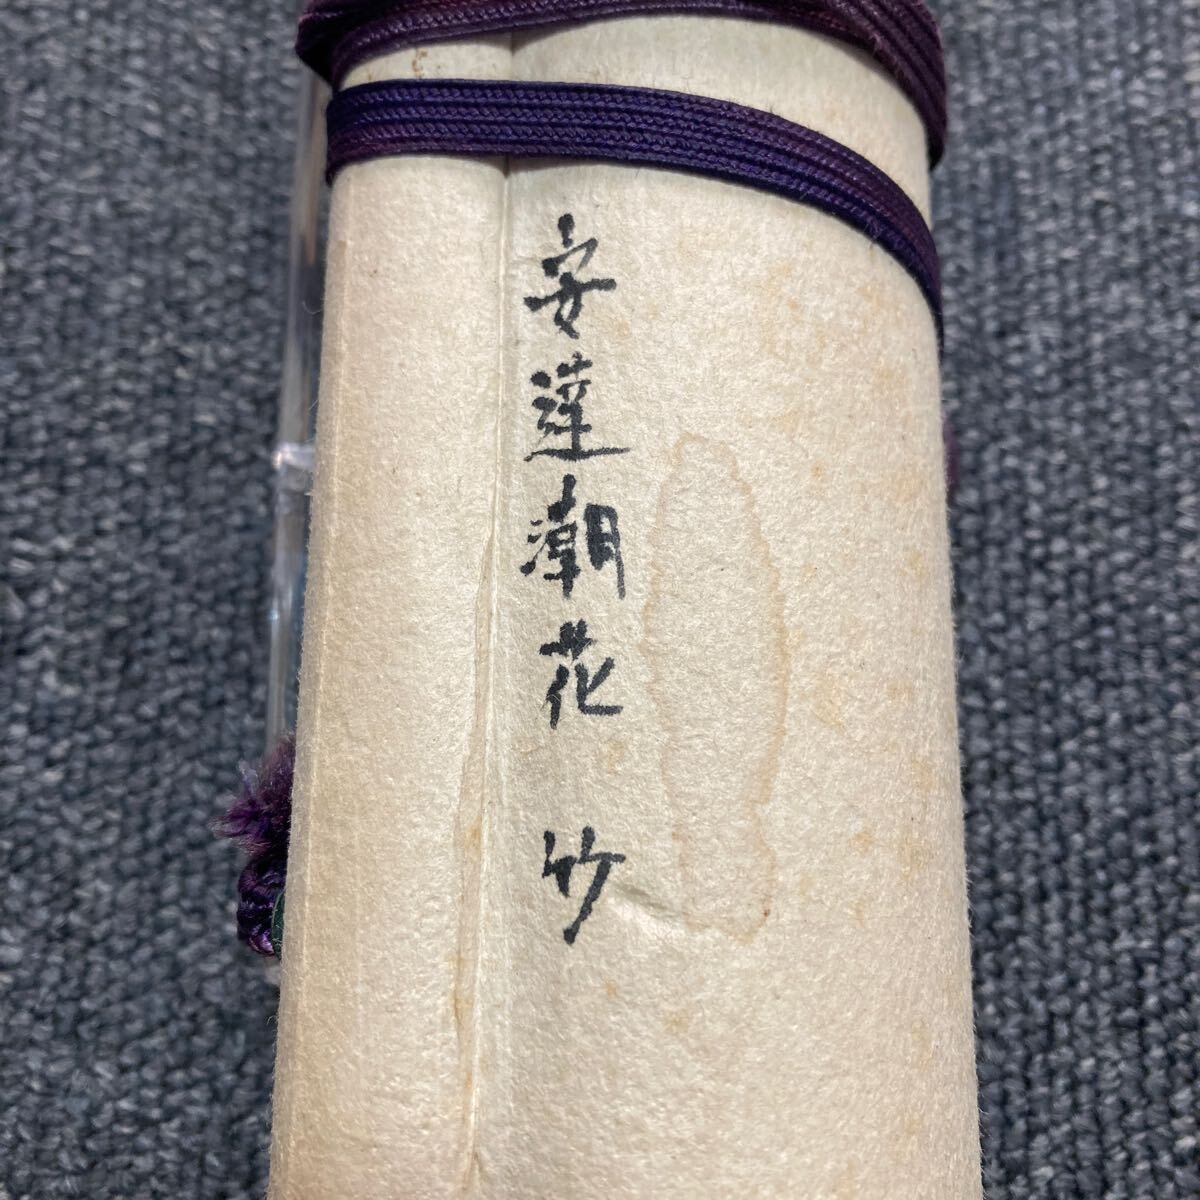 安達潮花 竹